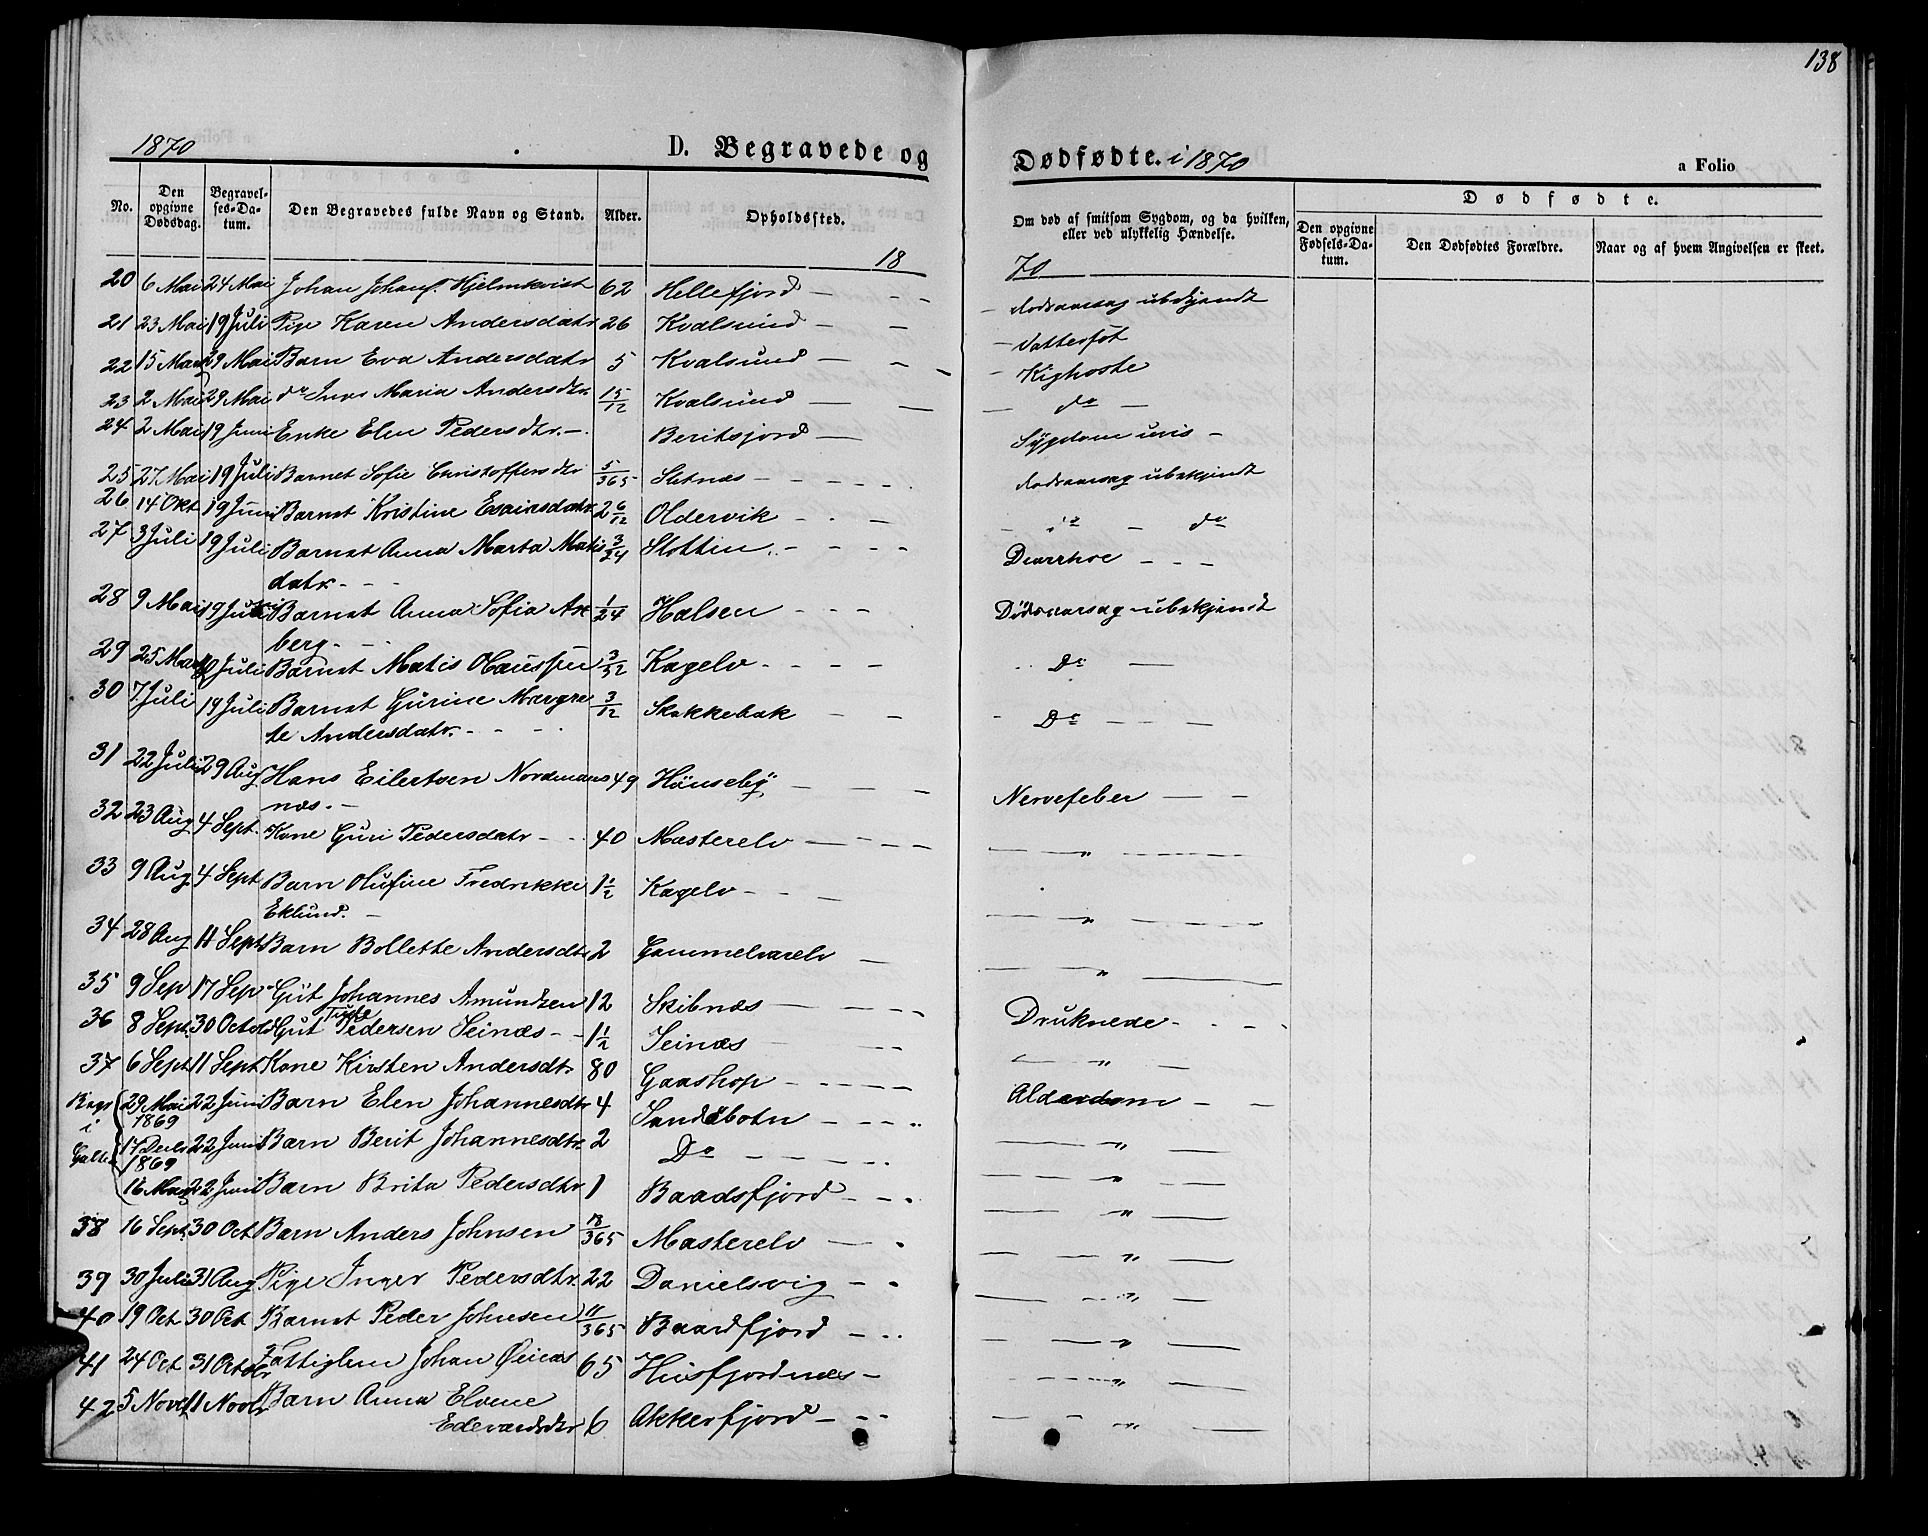 138
1870 D. Begravede og Dødfødte. i 1870 a Folio
No. Den opgivne Dødsdag. Begravelses-Datum. Den Begravedes fulde Navn og Stand. Alder. Opholdsted. Om død af smitsom Sygdom, og da hvilken, eller ved ulykkelig Hændelse. Dødfødte.
Den opgivne Fødsels-Datum. Den Dødfødtes Forældre. Naar og af hvem Angivelsen er skeet.
18 70
20 6 Mai 24 Mai Johan Johans. Hjelmkvist 62 Hellefjord — - - Dødsaarsag ubekjendt
21 23 Mai 19 Juli Pige Karen Andersdatr 26 Kvalsund — — Vattersot
22 15 Mars 29 Mai Barn Eva Andersdatr 5 Kvalsund — - - Kighoste
23 2 Mai 29 Mai do Maria Andersdtr. 15/12 Kvalsund — — do —
24 2 Mai 19 Juni Enke Elen Pedersdtr. — Beritsjord — Sygdom uvis -
25 27 Mai 19 Juli Barnet Sofie Christoffersdtr 5/365 Sletnæs - - - - - Dødsaarsag ubekjendt
26 14 Okt 19 Juni Barnet Kristine Esaiasdatr 2 6/12 Oldervik - - - do - do
27 3 Juli 19 Juli Barnet Anna Marta Matis 3/24 Slotten - - - - Diarrhoe - - -
datr. - - -
28 9 Mai 19 Juli Barnet Anna Sofia Ak 1/24 Halsen - - - Dødsaarsag ubekjendt
berg. - -
29 25 Mars 10 Juli Barnet Matis Olaussen 3/52 Kagelv - - - - Do —
30 7 Juli 19 Juli Barnet Gurine Margre 3/12 Skakkebak - - Do - - -
te Andersdatr. - - -
31 22 Juli 29 Aug Hans Eilertsen Nordmans 49 Hönseby — - - Nervefeber — -
næs. -
32 23 Aug 4 Sept. Kone Guri Pedersdatr - - 40 Masterelv — - - - — „ - - - -
33 9 Aug 4 Sept Barn Olufine Fredrikke 1½ Kagelv - - — — „ - - - -
Eklund. -
34 28 Aug 11 Sept Barn Bollette Andersdtr 2 Gammelvarelv — — „ —
35 9 Sep 17 Sep Gut Johannes Amundsen 12 Skibnæs — - - - Druknede - - - -
36 8 Sept. 30 Octob Gut Pedersen Seinæs - - 1½ Seinæs - - — „ —
37 6 Sept 11 Sept Kone Kirsten Andersdt. 80 Gaashop - - - - - Alderdom - -
29 Mai 1869 22 Juni Barn Elen Johannesdtr 4 Sandbotn - - - - — „ —
i 14 Decb 1869 22 Juni Barn Berit Johannesdtr. 2 Do - - - - — „ - -
16 Mars 22 Juni Barn Brita Pedersdtr. 1 Baadsfjord - - - — „ —
38 16 Sept. 30 Oct Barn Anders Johnsen 18/365 Masterelv — - — „ —
39 30 Juli 31 Aug Pige Inger Pedersdtr. 22 Danielsvig - - — „ —
40 19 Oct 30 Oct Barnet Peder Johnsen 11/365 Baardfjord - - - — „ —
41 24 Oct 31 Octobr Fattiglem Johan 65 Husfjordnæs - — „ —
42 5 Novb 11 Novbr Barn Anna Elvene
Edevardsdtr 6 Akkerfjord - - - — „ —